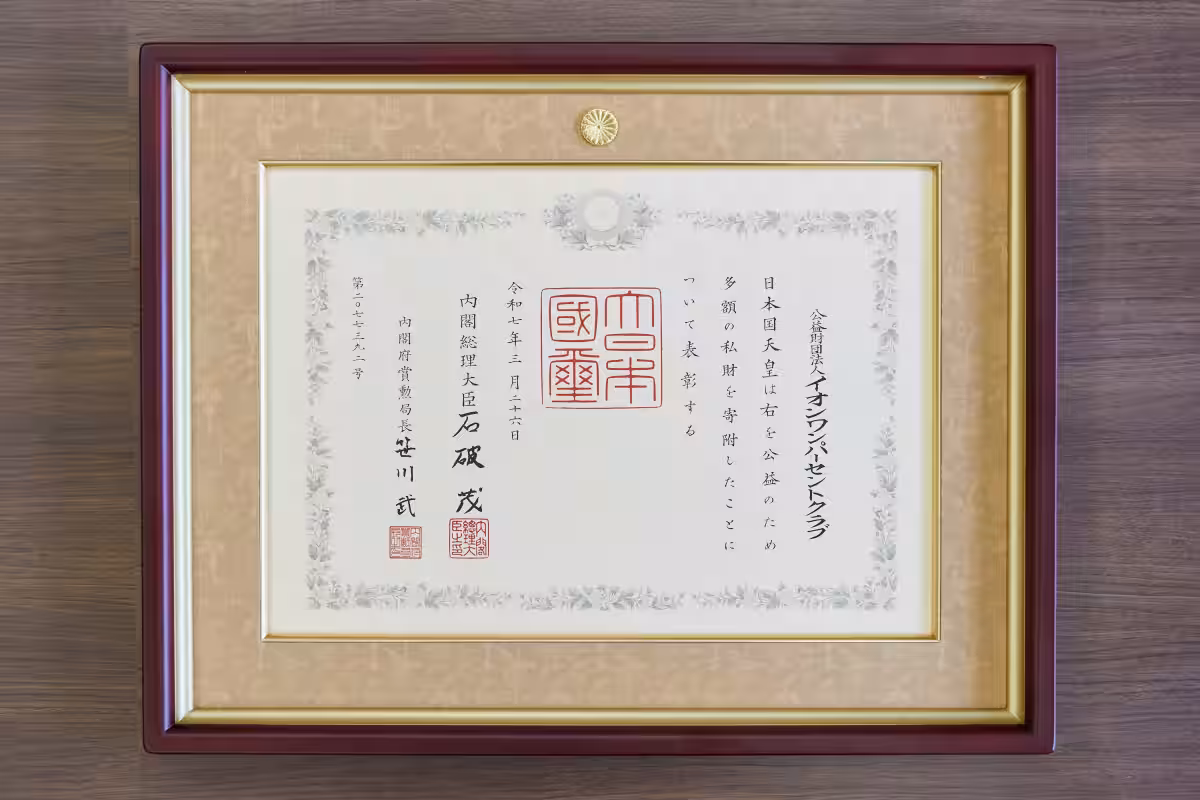 公益財団法人イオンワンパーセントクラブ
日本国天皇は右を公益のため
多額の私財を寄附したことに
ついて表彰する
大日本
國璽
令和七年三月二十六日
内閣総理大臣石破茂
内閣
總理大
臣之印
内閣府賞勲局長笹川武
第二〇七七三九二号